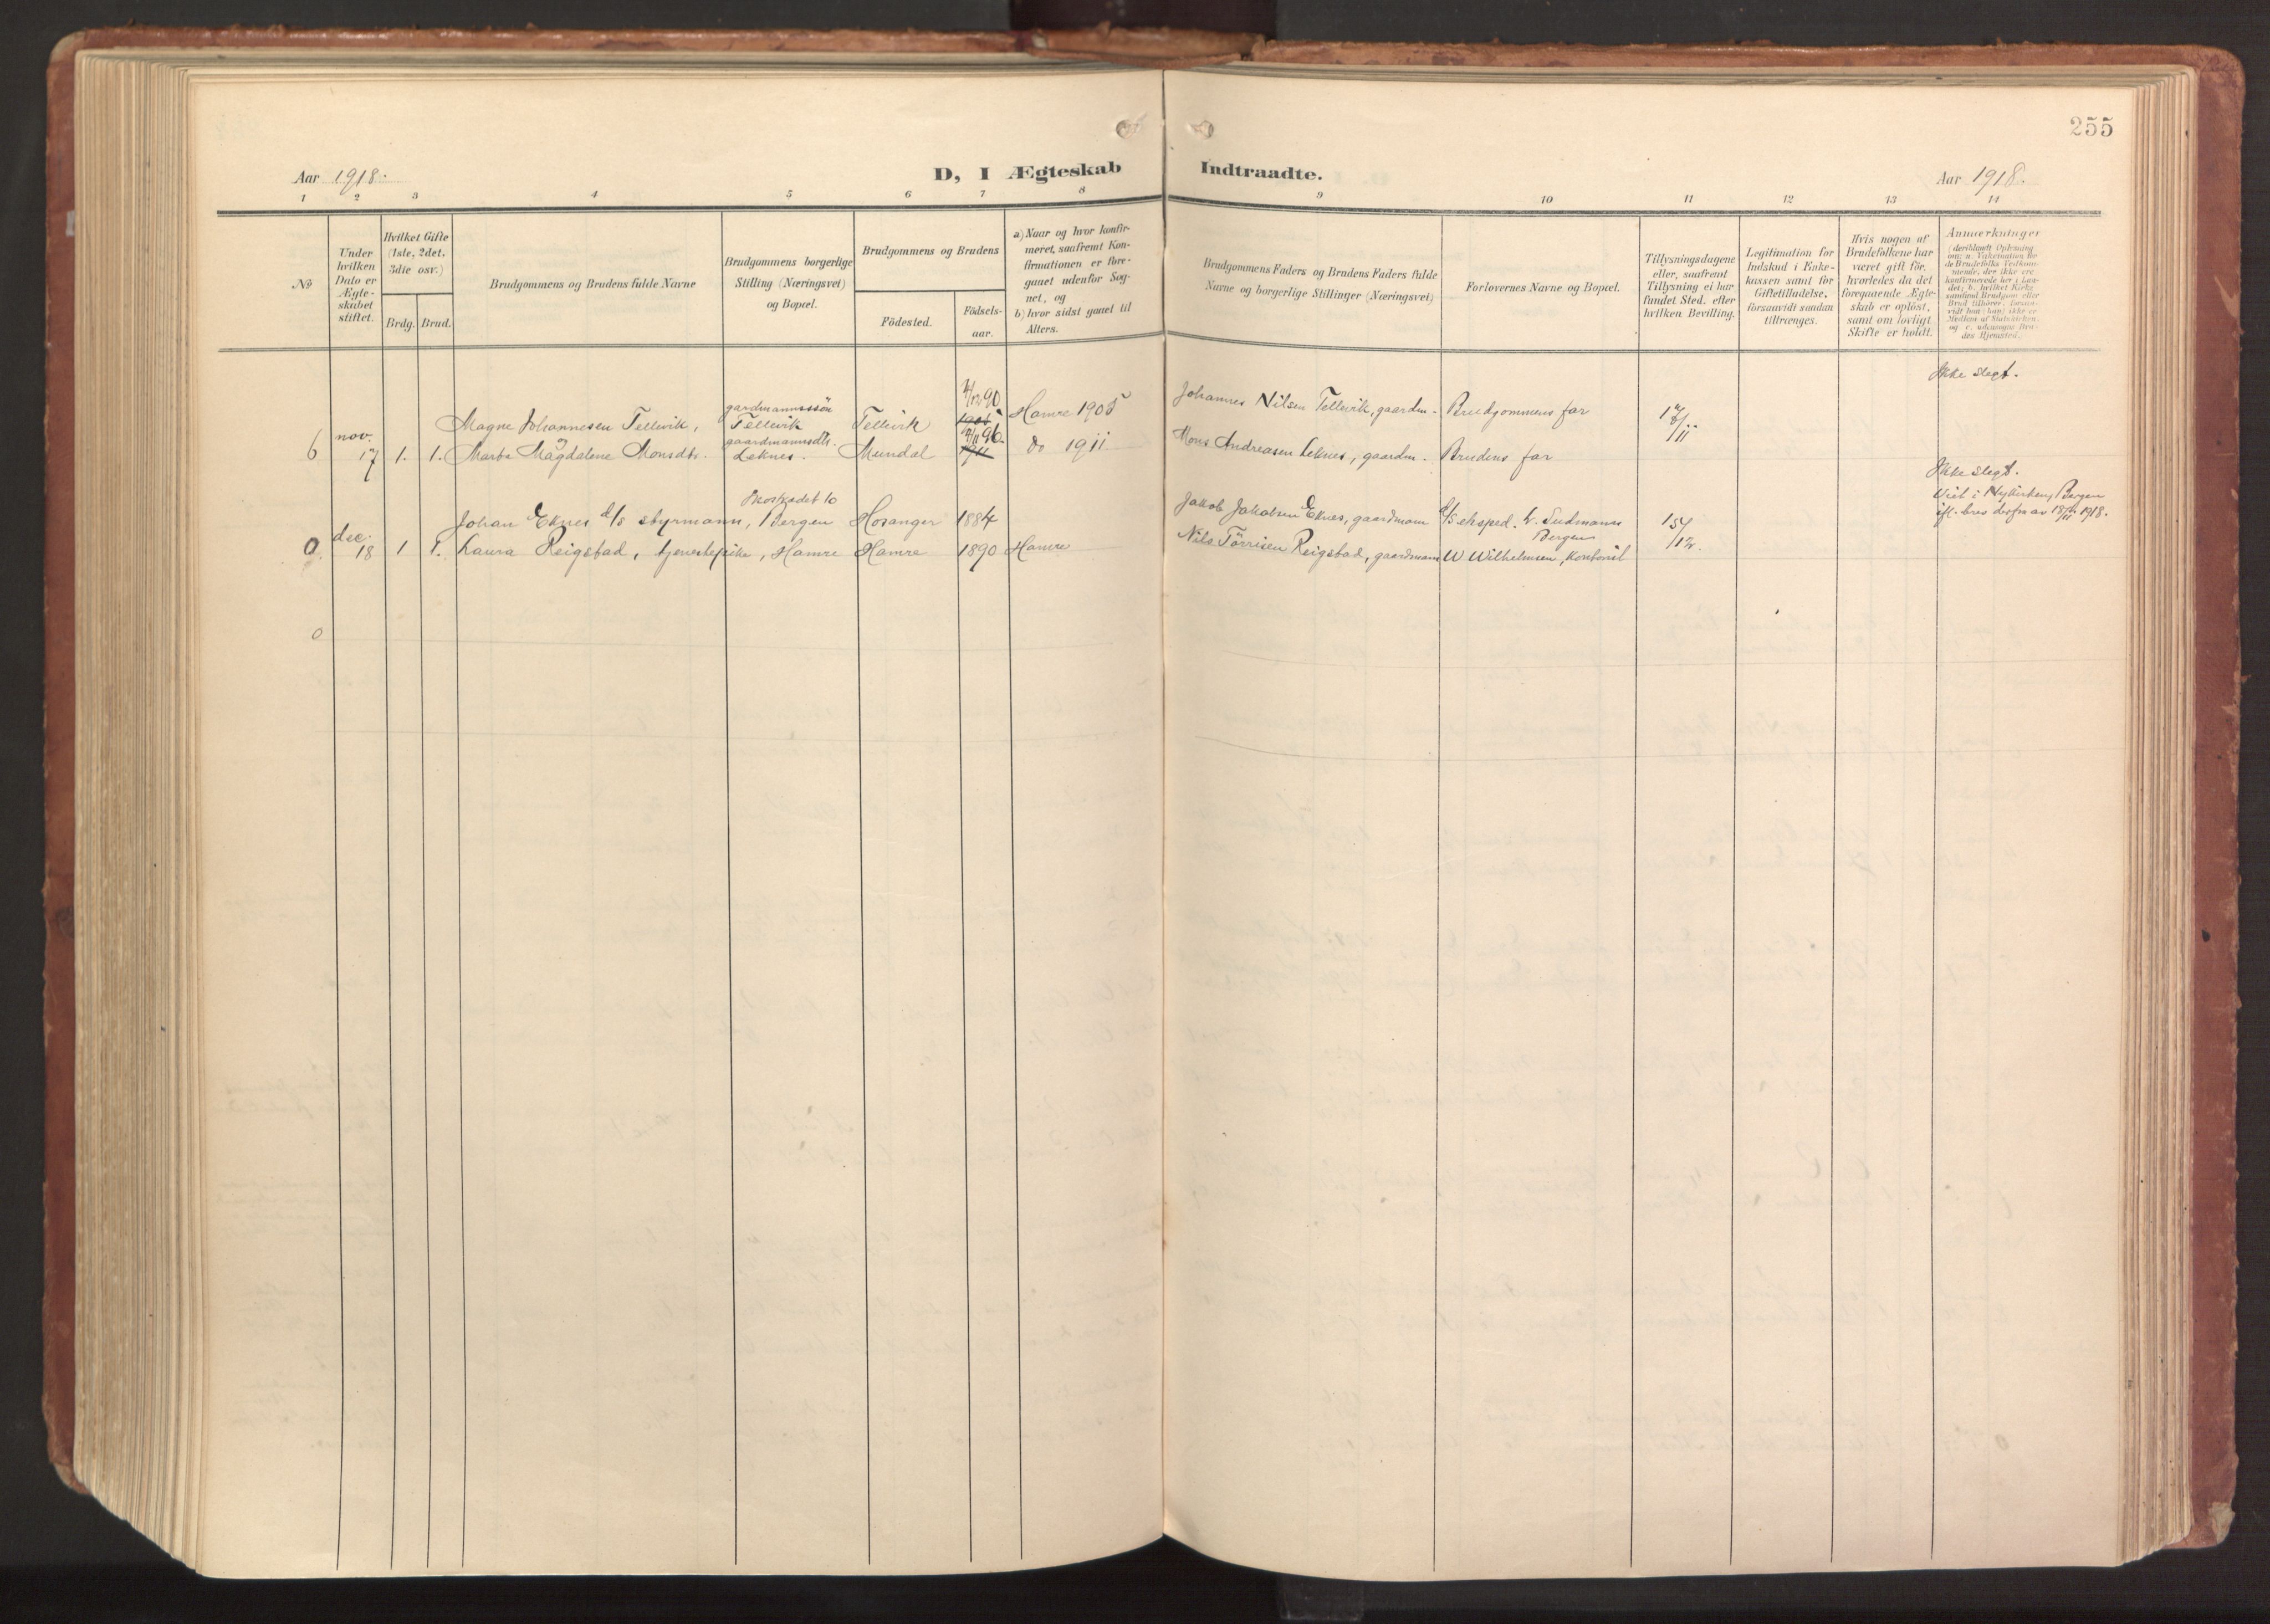 255
Aar 1918.
D, I Ægteskab
Indtraadte.
Aar 1918.
1 2 3 4 5 6 7 8 9 10 11 12 13 14
No
Under
hvilken
Dato er
Ægte-
skabet
stiftet.
Hvilket Gifte
(1ste, 2det,
3die osv.)
Brdg. Brud.
Brudgommens og Brudens fulde Navne
Brudgommens borgerlige
Stilling (Næringsvei)
og Bopæl.
Brudgommens og Brudens
Födested.
Födsels-
aar.
a) Naar og hvor konfir-
meret, saafremt Kon-
firmationen er fore-
gaaet udenfor Sog-
net, og
b) hvor sidst gaaet til
Alters.
Brudgommens Faders og Brudens Faders fulde
Navne og borgerlige Stillinger (Næringsvei)
Forlovernes Navne og Bopæl.
Tillysningsdagene
eller, saafremt
Tillysning ei har
fundet Sted, efter
hvilken Bevilling.
Legitimation for
Indskud i Enke-
kassen samt for
Giftetilladelse,
forsaavidt saadan
tiltrænges.
Hvis nogen af
Brudefolkene har
været gift för,
hvorledes da det
foregaaende Ægte-
skab er oplöst,
samt om lovligt
Skifte er holdt.
Anmærkninger
(deriblandt Oplysning
om: a. Vaksination for
de Brudefolks Vedkom-
mende, der ikke ere
konfirmerede her i Lan-
det; b. hvilket Kirke-
samfund Brudgom eller
Brud tilhörer, forsaa-
vidt hun (han) ikke er
Medlem af Statskirken,
og c. udensogns Bru-
des Hjemsted.
Ikke slegt.
Magne Johannesen Tellevik, gardmannssön Tellevik Tellevik 90 1905 Hamre 1905 Johannes Nilsen Tellevik, gaardm. Brudgommens far
6 nov. 17 1. 1. Marta Magdalene Monsdtr. gaardmannsdtr. Leknes. Mundal 96 1911 do 1911 Mons Andreasen Leknes, gaardm. Brudens far
Ikke slegt.
Viet i Nykirken, Bergen
ifl. brev derfra av 18/ 1918.
Johan Eknes d/s styrmann, 10 Bergen Hosanger 1884 Jakob Jakobsen Eknes, gaardmann d/s eksped. Sudmann Bergen
dec. 18 1 1. Laura Reigstad, tjenestepike, Hamre Hamre 1890 Hamre Nils Törrisen Reigstad, gaardmann W. Wilhelmsen, kontorist
0